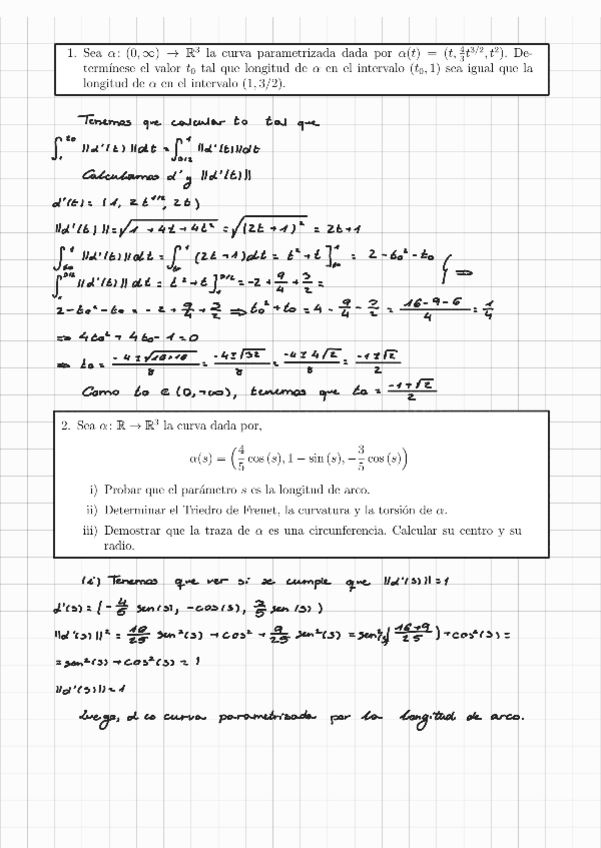 1. Sea α: (0, ∞) → ℝ³ la curva parametrizada dada por α(t) = (t, 4/3 t^{3/2}, t²). De-
termínese el valor t₀ tal que longitud de α en el intervalo (t₀, 1) sea igual que la
longitud de α en el intervalo (1, 3/2).
Tenemos que calcular to tal que
Calculamos α' y ||α'(t)||
α'(t) = (1, 2t^{1/2}, 2t)
||α'(t)|| = √(1 + 4t + 4t²) = √((2t + 1)²) = 2t + 1
∫_{to}^{1} ||α'(t)|| dt = ∫_{to}^{1} (2t + 1) dt = t² + t ]_{to}^{1} = 2 - to² - to
∫_{1}^{3/2} ||α'(t)|| dt = t² + t ]_{1}^{3/2} = -2 + 9/4 + 3/2 =
2 - to² - to = -2 + 9/4 + 3/2 ⇒ to² + to = 4 - 9/4 - 3/2 = (16-9-6)/4 = 1/4
⇒ 4to² + 4to - 1 = 0
⇒ to = (-4 ± √(16+16))/8 = (-4 ± √32)/8 = (-4 ± 4√2)/8 = (-1 ± √2)/2
Como to ∈ (0, +∞), tenemos que to = (-1 + √2)/2
2. Sea α: ℝ → ℝ³ la curva dada por,
α(s) = (4/5 cos (s), 1 − sin (s), −3/5 cos (s))
i) Probar que el parámetro s es la longitud de arco.
ii) Determinar el Triedro de Frenet, la curvatura y la torsión de α.
iii) Demostrar que la traza de α es una circunferencia. Calcular su centro y su
radio.
(i) Tenemos que ver si se cumple que ||α'(s)|| = 1
α'(s) = (-4/5 sen(s), -cos(s), 3/5 sen(s))
||α'(s)||² = 16/25 sen²(s) + cos² + 9/25 sen²(s) = sen²(s) ((16+9)/25) + cos²(s) =
= sen²(s) + cos²(s) = 1
||α'(s)|| = 1
Luego, α es curva parametrizada por la longitud de arco.